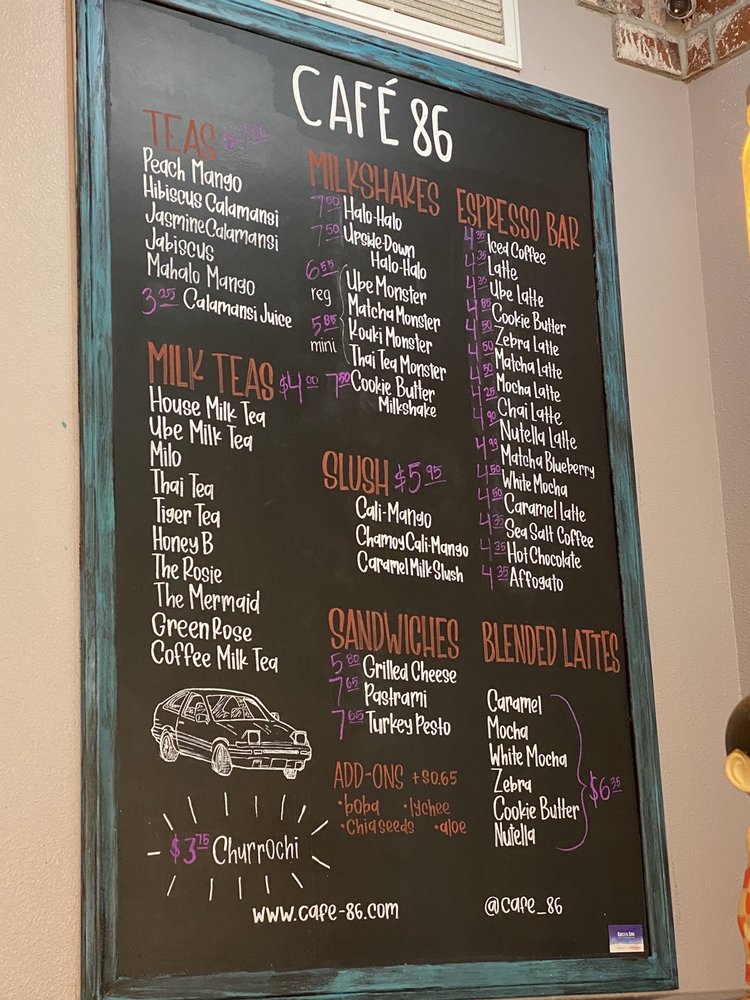 CAFÉ 86
TEAS
Peach Mango
Hibiscus Calamansi
Jasmine Calamansi
Jabiscus
Mahalo Mango
3.25 Calamansi Juice
MILK TEAS $4.00
House Milk Tea
Ube Milk Tea
Milo
Thai Tea
Tiger Tea
Honey B
The Rosie
The Mermaid
Green Rose
Coffee Milk Tea
$3.75 Churrochi
MILKSHAKES
7.50 Halo-Halo
7.50 Upside-Down
Halo-Halo
6.55 reg
5.85 mini
Ube Monster
Matcha Monster
Kouki Monster
Thai Tea Monster
7.50 Cookie Butter
Milkshake
SLUSH $5.95
Cali-Mango
Chamoy Cali-Mango
Caramel Milk Slush
SANDWICHES
5.80 Grilled Cheese
7.65 Pastrami
7.65 Turkey Pesto
ADD-ONS +$0.65
•boba •lychee
•Chia seeds •aloe
ESPRESSO BAR
4.35 Iced Coffee
4.35 Latte
4.35 Ube Latte
4.85 Cookie Butter
4.50 Zebra Latte
4.50 Matcha Latte
4.50 Mocha Latte
4.25 Chai Latte
4.90 Nutella Latte
4.95 Matcha Blueberry
4.50 White Mocha
4.50 Caramel Latte
4.35 Sea Salt Coffee
4.35 Hot Chocolate
4.35 Affogato
BLENDED LATTES
Caramel
Mocha
White Mocha
Zebra
Cookie Butter
Nutella
$6.35
www.cafe-86.com
@cafe_86